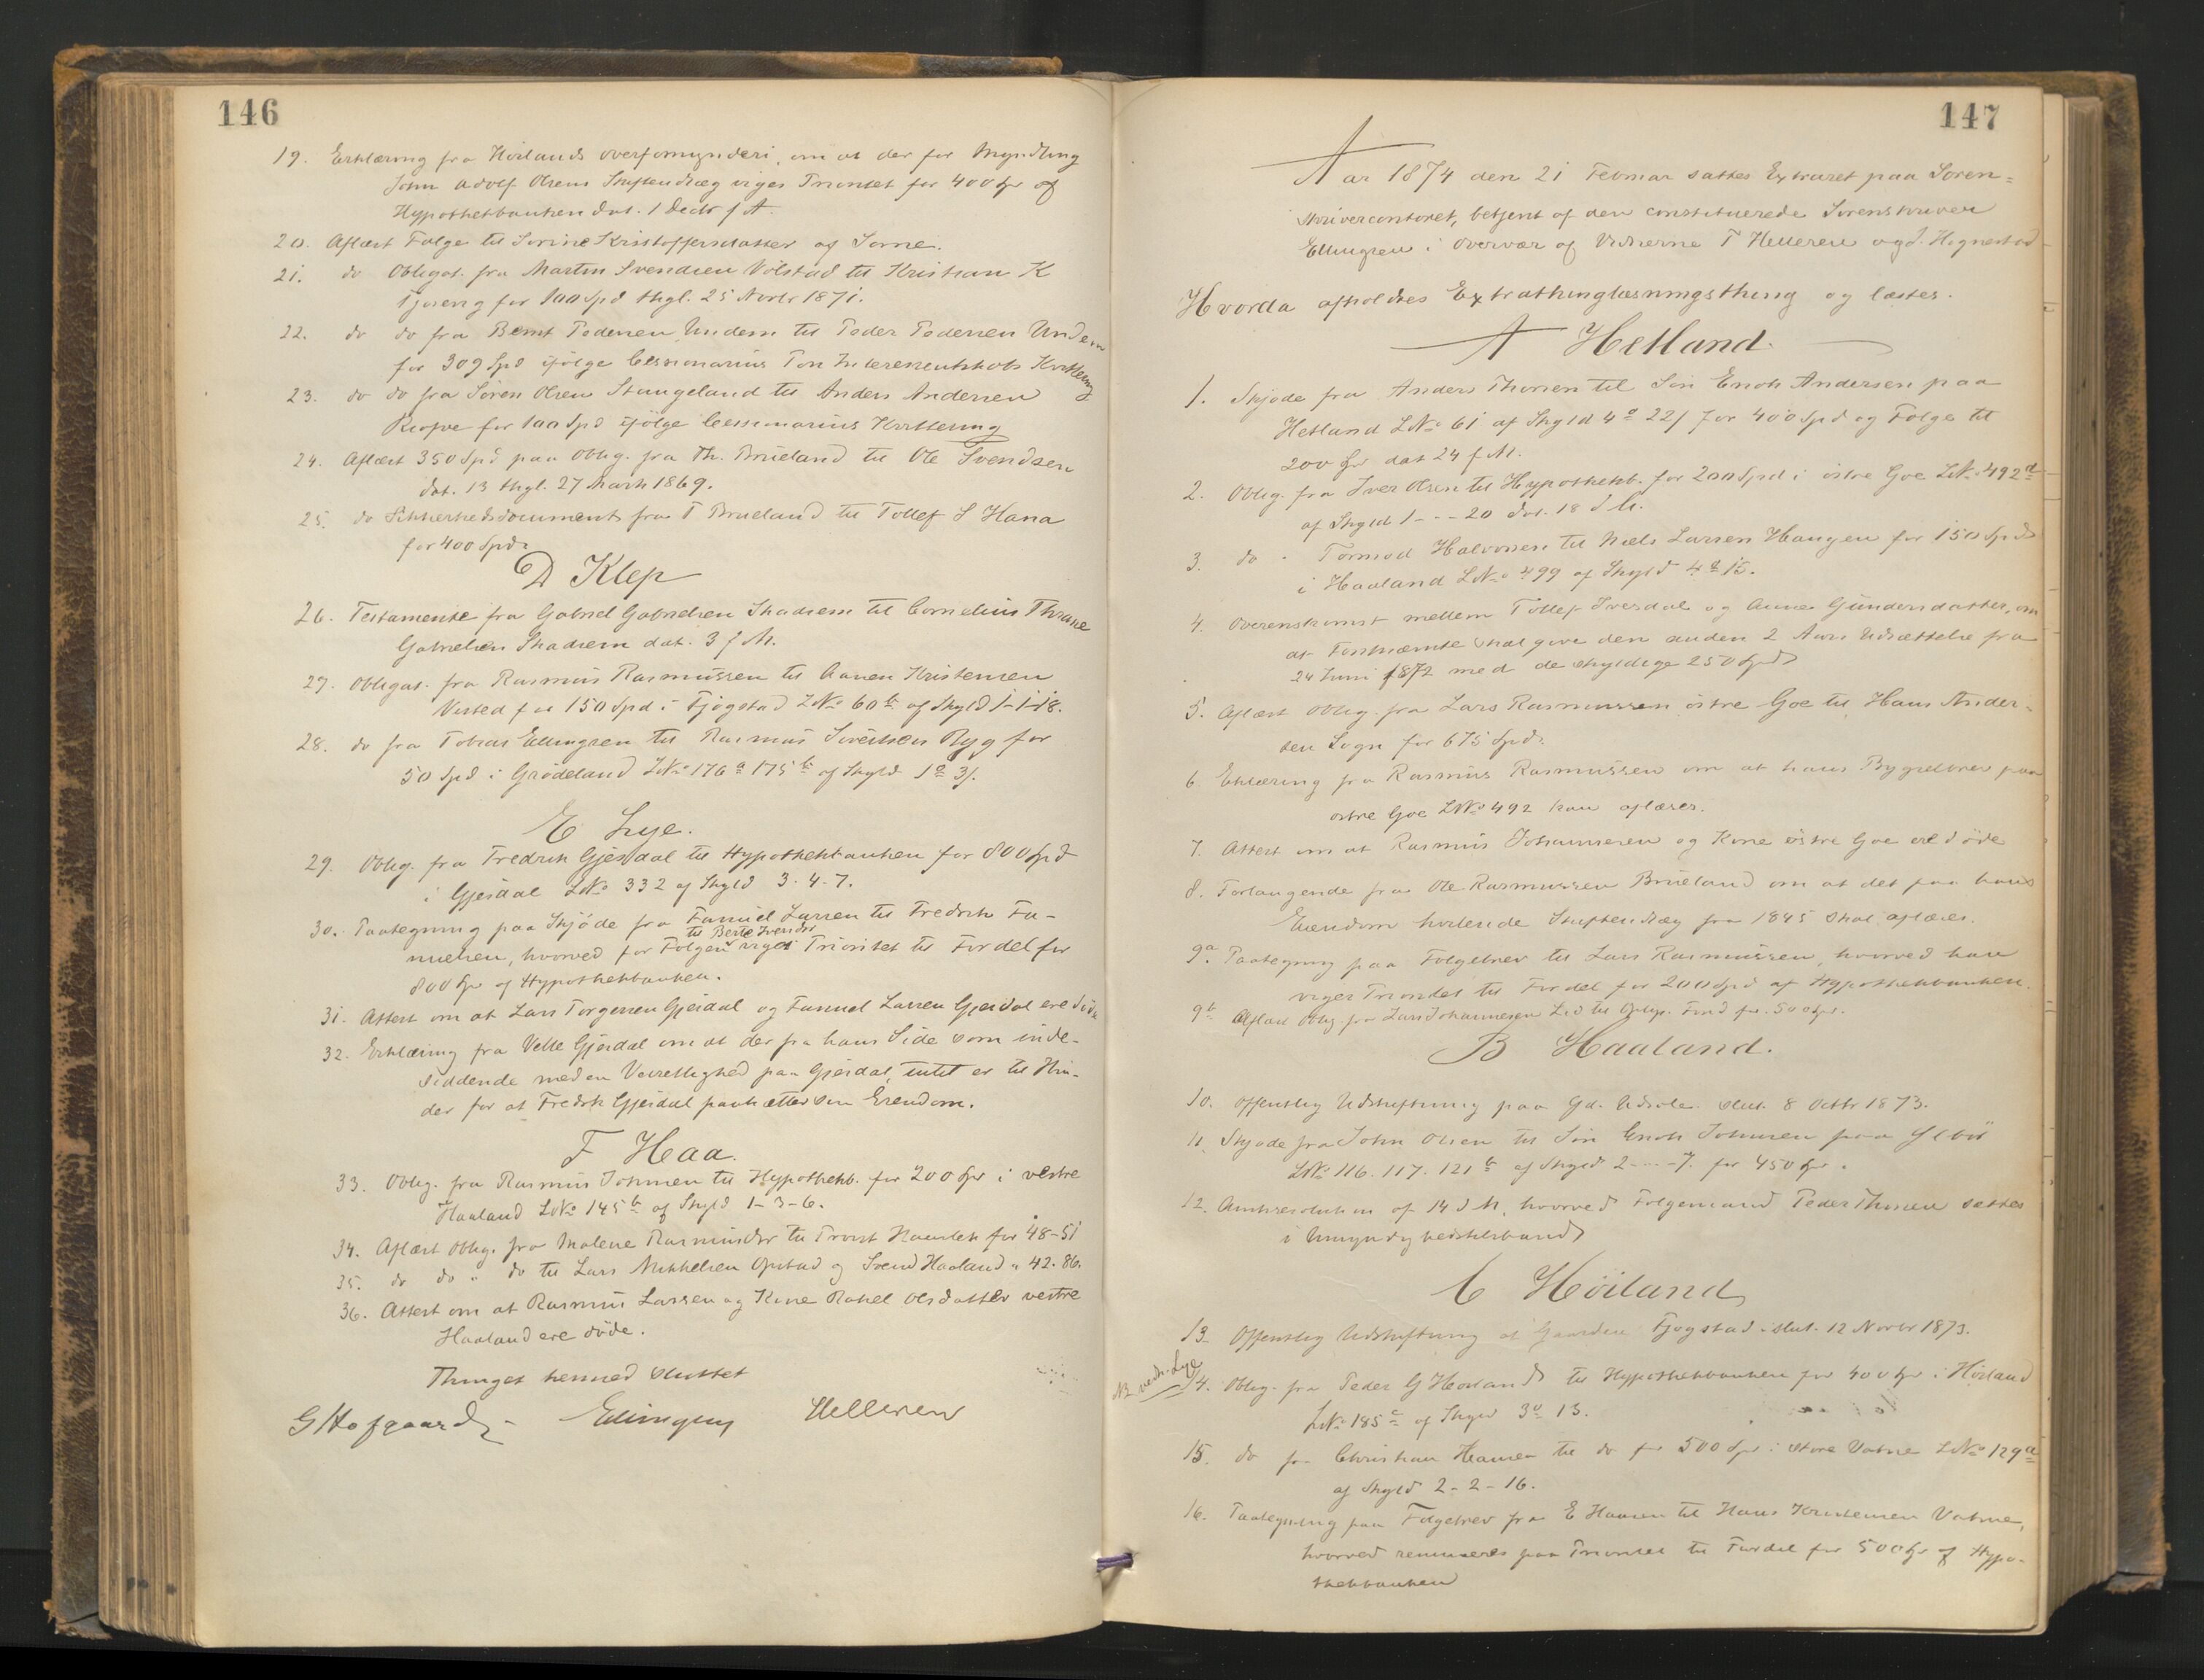 146
19. Erklæring fra Høilands overformynderi, om at der for Myndling
John Adolf Olsens Skiftendlæg viges Prioritet for 400 Spd af
Hypothekbanken dat. 1 Decbr f A.
20. Aflæst Følge til Serine Kristoffersdatter af Sørne.
21. do Obligat. fra Martin Svendsen Vølstad til Kristian K
Tjøreng for 100 Spd thgl. 25 Novbr 1871.
22. do do fra Bernt Pedersen Undem til Peder Pedersen Undem
for 309 Spd ifølge Cessionarius Ton Interessentskabs Kvittering
23. do do fra Søren Olsen Stangeland til Anders Andersen
for 100 Spd ifølge Cessionarius Kvittering
24. Aflæst 350 Spd paa Oblig. fra Th. Brueland til Ole Svendsen
dat. 13 thgl. 27 Marts 1869.
25. do Sikkerhedsdocument fra T Brueland til Tollef S Hana
for 400 Spd.
D Klep
26. Testamente fra Gabriel Gabrielsen Skadsem til Cornelius Thrane
Gabrielsen Skadsem dat. 3 f M.
27. Obligat. fra Rasmus Rasmussen til Aanen Kristensen
Vested for 150 Spd i Fjogstad LNo 60 b af Skyld 1-1-18.
28. do fra Tobias Ellingsen til Rasmus Sivertsen Ryg for
50 Spd i Grødeland LNo 176 a 175 b af Skyld 1 a 3 s.
E Lye.
29. Oblig. fra Fredrik Gjesdal til Hypothekbanken for 800 Spd
i Gjesdal LNo 332 af Skyld 3. 4. 7.
30. Paategning paa Skjøde fra Famuel Larsen til Fredrik Fa-
til Berte Svendsd
muelsen, hvorved for Følgen viges Prioritet til Fordel for
800 Spd af Hypothekbanken.
31. Attest om at Lars Torgersen Gjesdal og Famuel Larsen Gjesdal ere døde
32. Erklæring fra Velle Gjesdal om at der fra hans Side som inde-
siddende med en Veirettighed paa Gjesdal, intet er til Hin-
der for at Fredrik Gjesdal pantsætter sin Eiendom.
F Haa.
33. Oblig. fra Rasmus Johnsen til Hypothekb. for 200 Spd i vestre
Haaland LNo 145 b af Skyld 1-3-6.
34. Aflæst Oblig. fra Malene Rasmusdtr til Provst Hauslek for 48-51
35. do do " do til Lars Mikkelsen Opstad og Svend Haaland " 42. 86.
36. Attest om at Rasmus Larsen og Kone Rakel Olsdatter vestre
Haaland ere døde.
Thinget hermed sluttet
G Hofgaard Ellingsen Helleren
147
Aar 1874 den 21 Februar sattes Extraret paa Soren-
skrivercontoret, betjent af den constituerede Sorenskriver
Ellingsen i Overvær af Vidnerne T Helleren og J. Hognestad
Hvorda afholdtes Extrathinglæsningsthing og læstes.
A Hetland.
1. Skjøde fra Anders Thorsen til Søn Enok Andersen paa
Hetland LNo 61 af Skyld 4 o 22 s for 400 Spd og Følge til
200 Spd dat 24 f M.
2. Oblig. fra Iver Olsen til Hypothekb. for 200 Spd i østre Goe LNo 492 d
af Skyld 1 - - - 20 dat. 18 d M.
3. do " Tormod Halvorsen til Niels Larsen Haugen for 150 Spd
i Haaland LNo 499 af Skyld 4 o 15.
4. Overenskomst mellem Tollef Ivesdal og Anne Gundersdatter, om
at Førstnævnte skal give den anden 2 Aars Udsættelse fra
24 Juni 1872 med de skyldige 250 Spd
5. Aflæst Oblig. fra Lars Rasmussen østre Goe til Hans Ander-
sen Sogn for 675 Spd.
6 Erklæring fra Rasmus Rasmussen om at hans Bygselbrev paa
østre Goe LNo 492 kan aflæses.
7. Attest om at Rasmus Johannesen og Kone østre Goe ere døde
8. Forlangende fra Ole Rasmussen Brueland om at det paa hans
Eiendom heftende Skiftendlæg fra 1845 skal aflæses.
9 a. Paategning paa Følgebrev til Lars Rasmussen, hvorved han
viger Prioritet til Fordel for 200 Spd af Hypothekbanken.
9 b Aflæst Oblig fra Lars Johannesen Lid til Oplys. Fond for 500 Spd.
B Haaland.
10. Offentlig Udskiftning paa Gd. Udsola slut. 8 Octbr 1873.
11. Skjøde fra John Olsen til Søn Enok Johnsen paa
LNo 116. 117. 121 b af Skyld 2 - - - 7. for 450 Spd.
12. Amtsresolution af 14 d M, hvorved Følgemand Peder Thorsen sættes
i Umyndighedstilstand
C Høiland
13. Offentlig Udskiftning af Gaarden Fjogstad slut. 12 Novbr 1873.
NB vedr. Lye
14. Oblig. fra Peder G Høiland til Hypothekbanken for 400 Spd i Høiland
LNo 185 c af Skyld 3 o 13.
15. do fra Christian Hansen til do for 500 Spd i store Vatne LNo 129 a
af Skyld 2-2-16.
16. Paategning paa Følgebrev fra E Hansen til Hans Kristensen Vatne,
hvorved renunceres paa Prioritet til Fordel for 500 Spd af Hypo-
thekbanken